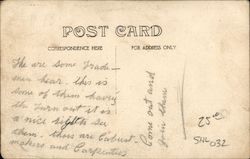 POST CARD
CORRESPONDENCE HERE
FOR ADDRESS ONLY
The are some Trades
men hear. this is
some of them having
the turn out it is
a nice sight to see
them. those are Cabinet
makers and Carpenters
Come out and
join them
25¢
SHL
032